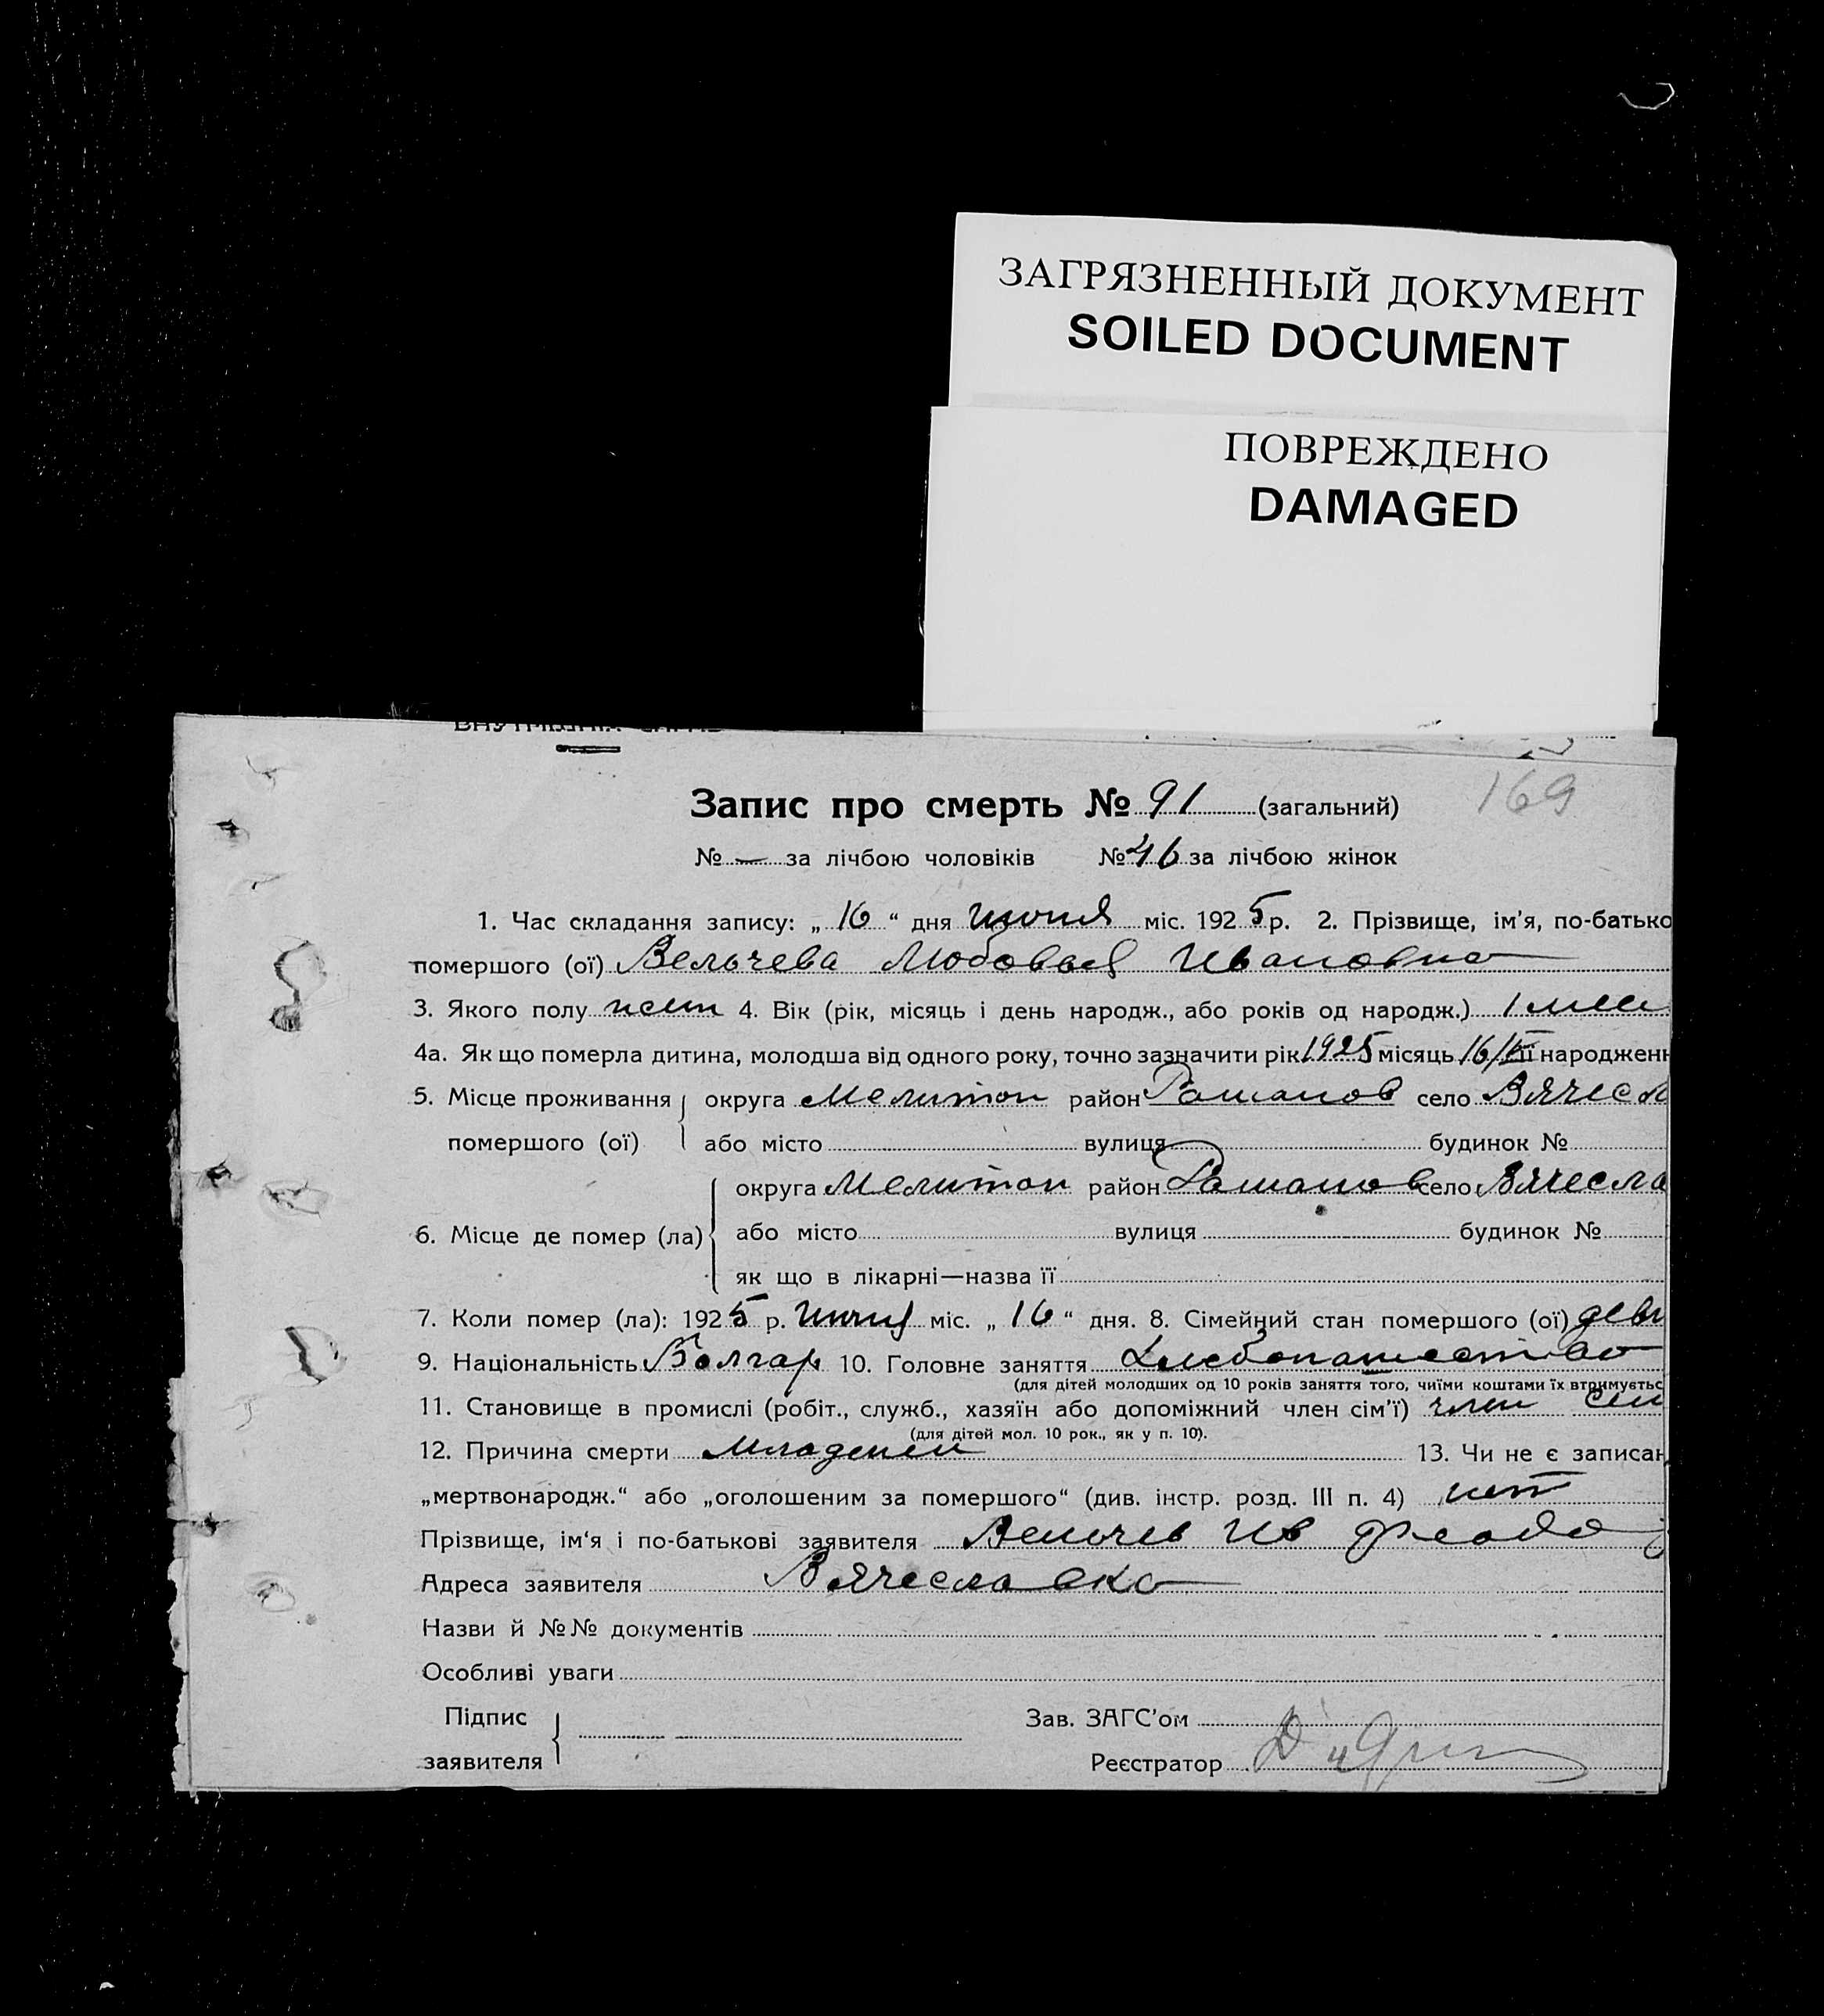 ЗАГРЯЗНЕННЫЙ ДОКУМЕНТ
SOILED DOCUMENT
ПОВРЕЖДЕНО
DAMAGED
169
Запис про смерть № 91 (загальний)
№ — за лічбою чоловіків № 46 за лічбою жінок
1. Час складання запису: „ 16 “ дня июня міс. 1925 р. 2. Прізвище, ім’я, по-батько
помершого (ої) Вельчева Любовья Ивановна
3. Якого полу жен 4. Вік (рік, місяць і день народж., або років од народж.) 1 мес
4а. Як що померла дитина, молодша від одного року, точно зазначити рік 1925 місяць 16/ народженн
5. Місце проживання округа Мелитоп район Романов село Вячесл
помершого (ої) або місто вулиця будинок №
округа Мелитоп район Романов село Вячесла
6. Місце де помер (ла) або місто вулиця будинок №
як що в лікарні—назва її
7. Коли помер (ла): 1925 р. июня міс. „ 16 “ дня. 8. Сімейний стан помершого (ої) деви
9. Національність Болгар 10. Головне заняття Хлебопашество
(для дітей молодших од 10 років заняття того, чиїми коштами їх втримуєтьс
11. Становище в промислі (робіт., служб., хазяїн або допоміжний член сім’ї) член сем
(для дітей мол. 10 рок., як у п. 10).
12. Причина смерти Младенен 13. Чи не є записан
„мертвонародж.“ або „оголошеним за помершого“ (див. інстр. розд. III п. 4) нет
Прізвище, ім‘я і по-батькові заявителя Вельчев Ив
Адреса заявителя Вячеславка
Назви й №№ документів
Особливі уваги
Підпис Зав. ЗАГС’ом
заявителя Реєстратор